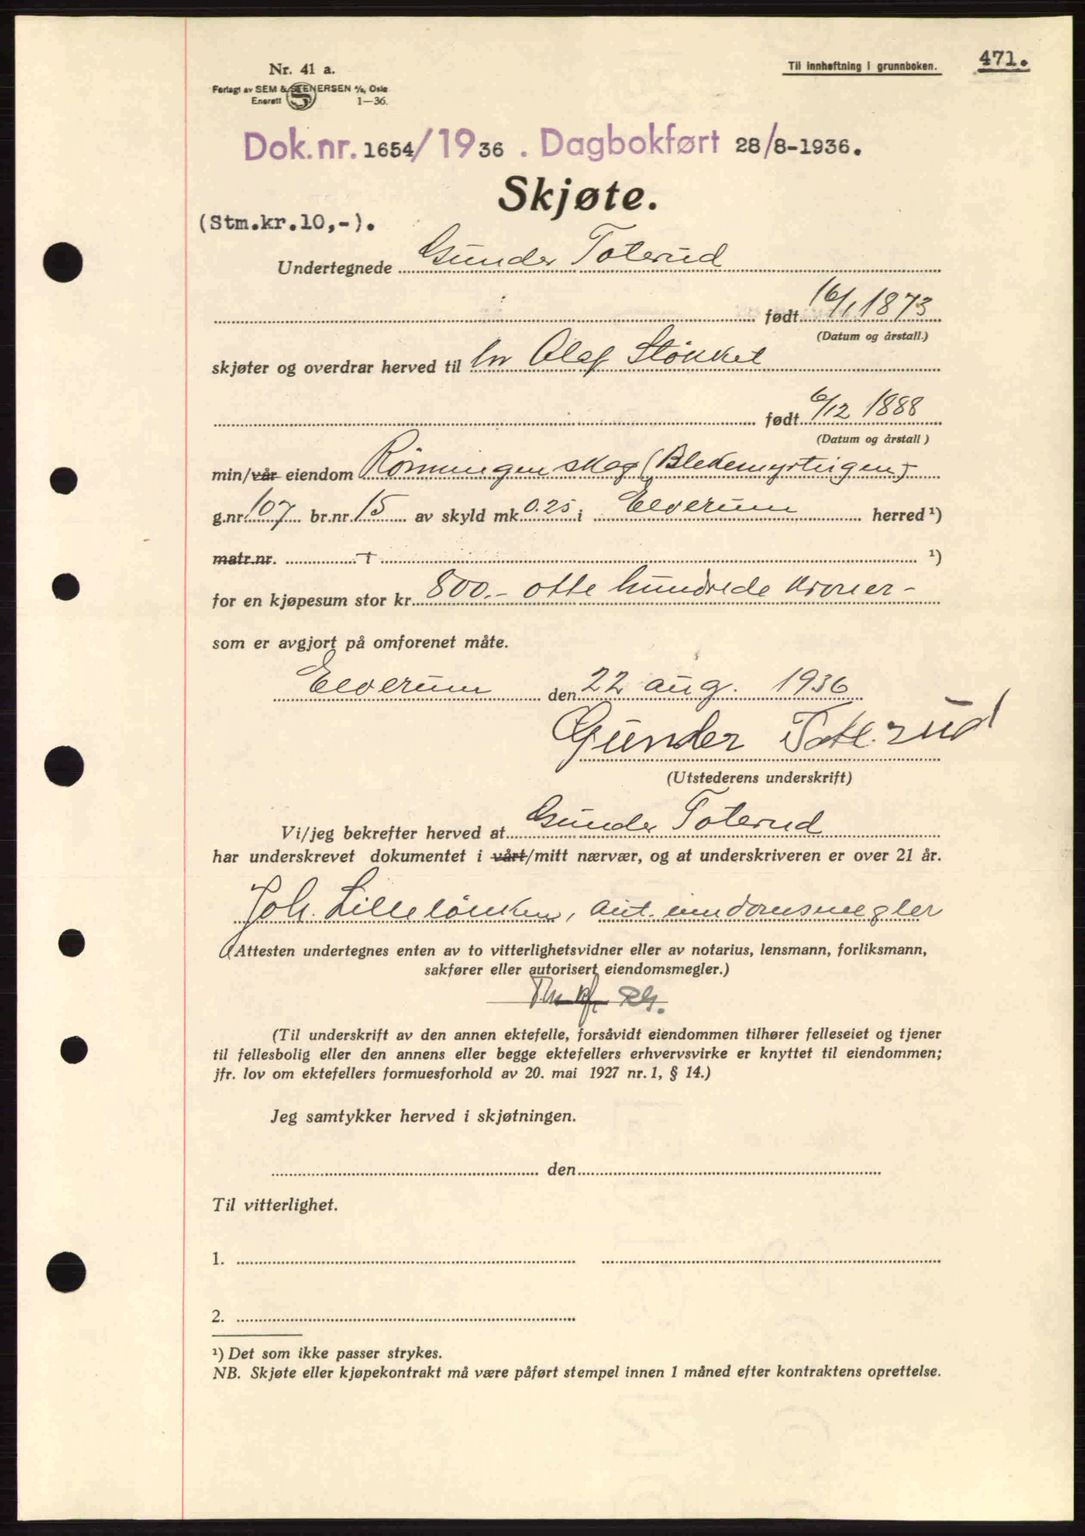 471.
Til innheftning i grunnboken.
Nr. 41 a.
Forlagt av SEM & STENERSEN A/S, Oslo
Enerett 1—36.
Dok.nr. 1654/1936 . Dagbokført 28/8-1936.
Skjøte.
(Stm.kr.10,-).
Undertegnede Gunder Toterud
født 16/1 1873
(Datum og årstall.)
skjøter og overdrar herved til hr Olaf Støkket
født 6/12 1888
(Datum og årstall )
min/vår eiendom Rønningen skog (Blekemyrteigen)
g.nr. 107 br.nr. 15 av skyld mk. 0.25 i Elverum herred ¹)
matr.nr. ¹)
for en kjøpesum stor kr. 800.- otte hundrede kroner -
som er avgjort på omforenet måte.
Elverum den 22 aug. 1936
Gunder Toterud
(Utstederens underskrift)
Vi/jeg bekrefter herved at Gunder Toterud
har underskrevet dokumentet i vårt/mitt nærvær, og at underskriveren er over 21 år.
Joh. Lilleløkken, aut. eiendomsmegler
(Attesten undertegnes enten av to vitterlighetsvidner eller av notarius, lensmann, forliksmann,
sakfører eller autorisert eiendomsmegler.)
(Til underskrift av den annen ektefelle, forsåvidt eiendommen tilhører felleseiet og tjener
til fellesbolig eller den annens eller begge ektefellers erhvervsvirke er knyttet til eiendommen;
jfr. lov om ektefellers formuesforhold av 20. mai 1927 nr. 1, § 14.)
Jeg samtykker herved i skjøtningen.
den
Til vitterlighet.
1.
2.
¹) Det som ikke passer strykes.
NB. Skjøte eller kjøpekontrakt må være påført stempel innen 1 måned efter kontraktens oprettelse.